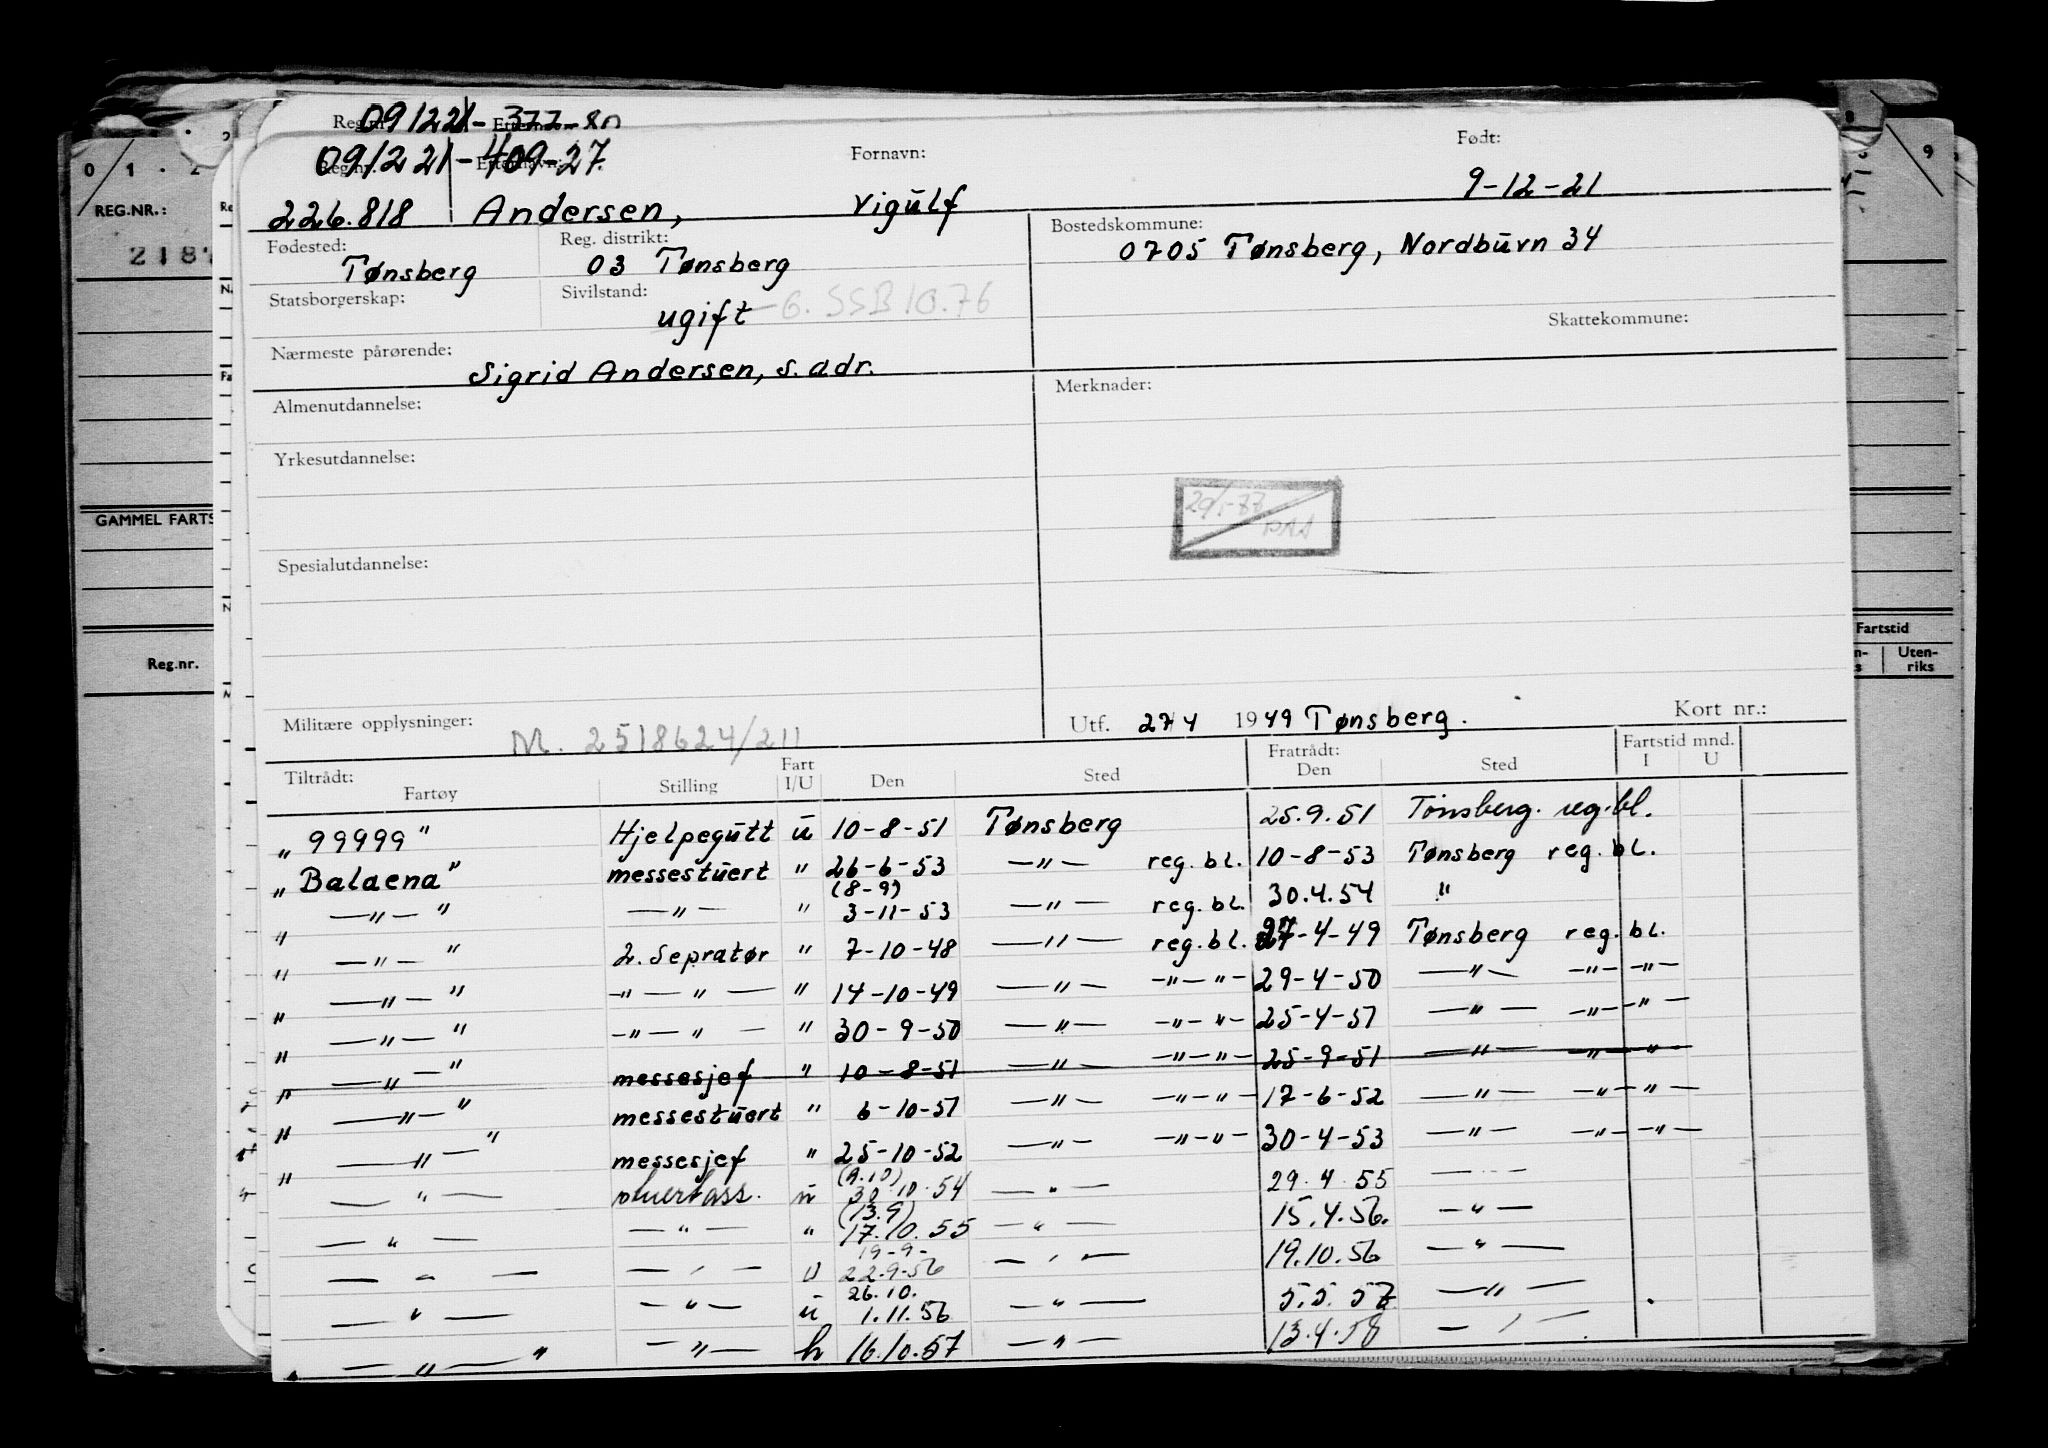 Reg.nr. 091221- 377-80 Etternavn:
Reg.nr. 091221-409-27. Etternavn: Fornavn: Født:
226.818 Andersen, Vigulf 9-12-21
Fødested: Tønsberg Reg. distrikt: 03 Tønsberg Bostedskommune: 0705 Tønsberg, Nordbyvn 34
Statsborgerskap: Sivilstand: ugift - G. SSB 10.76 Skattekommune:
Nærmeste pårørende: Sigrid Andersen, s. adr.
Almenutdannelse: Merknader:
Yrkesutdannelse:
29/1-87
PAA
Spesialutdannelse:
Militære opplysninger: M. 2518624/211 Utf. 27/4 1949 Tønsberg. Kort nr.:
Tiltrådt: Fartøy Stilling Fart I/U Den Sted Fratrådt: Den Sted Fartstid mnd. I U
"99999" Hjelpegutt u 10-8-51 Tønsberg 25.9.51 Tønsberg. reg.bl.
"Balaena" messestuert " 26-6-53 —"— reg. bl. 10-8-53 Tønsberg reg. bl.
" —"— " —"— " (8-9) 3-11-53 —"— reg.bl. 30.4.54 "
" —"— " 2. Sepratør " 7-10-48 —"— reg.bl. 27-4-49 Tønsberg reg. bl.
" —"— " —"—"— " 14-10-49 —"— —"—"— 29-4-50 —"— —"—"—
" —"— " —"—"— " 30-9-50 —"— —"—"— 25-4-51 —"— —"—"—
" —"— " messesjef " 10-8-51 —"— —"—"— 25-9-51 —"— —"—"—
" —"— " messestuert " 6-10-51 —"— —"—"— 17-6-52 —"— —"—"—
" —"— " messesjef " 25-10-52 —"— —"—"— 30-4-53 —"— —"—"—
—"— stuertass. u (9.10) 30.10.54 —"— 29.4.55 —"—
—"— —"— " (13.9) 17.10.55 —"— 15.4.56. —"—
—"— —"— U 19-9- 22.9.56 —"— 19.10.56 —"—
—"— —"— u 26.10. 1.11.56 —"— 5.5.57 —"—
" —"— " —"— h 16.10.57 —"— 13.4.58 —"—
0 1 · 2
REG.NR.:
2187
GAMMEL FARTS
Reg.nr.
9
Fartstid
Uten-
riks